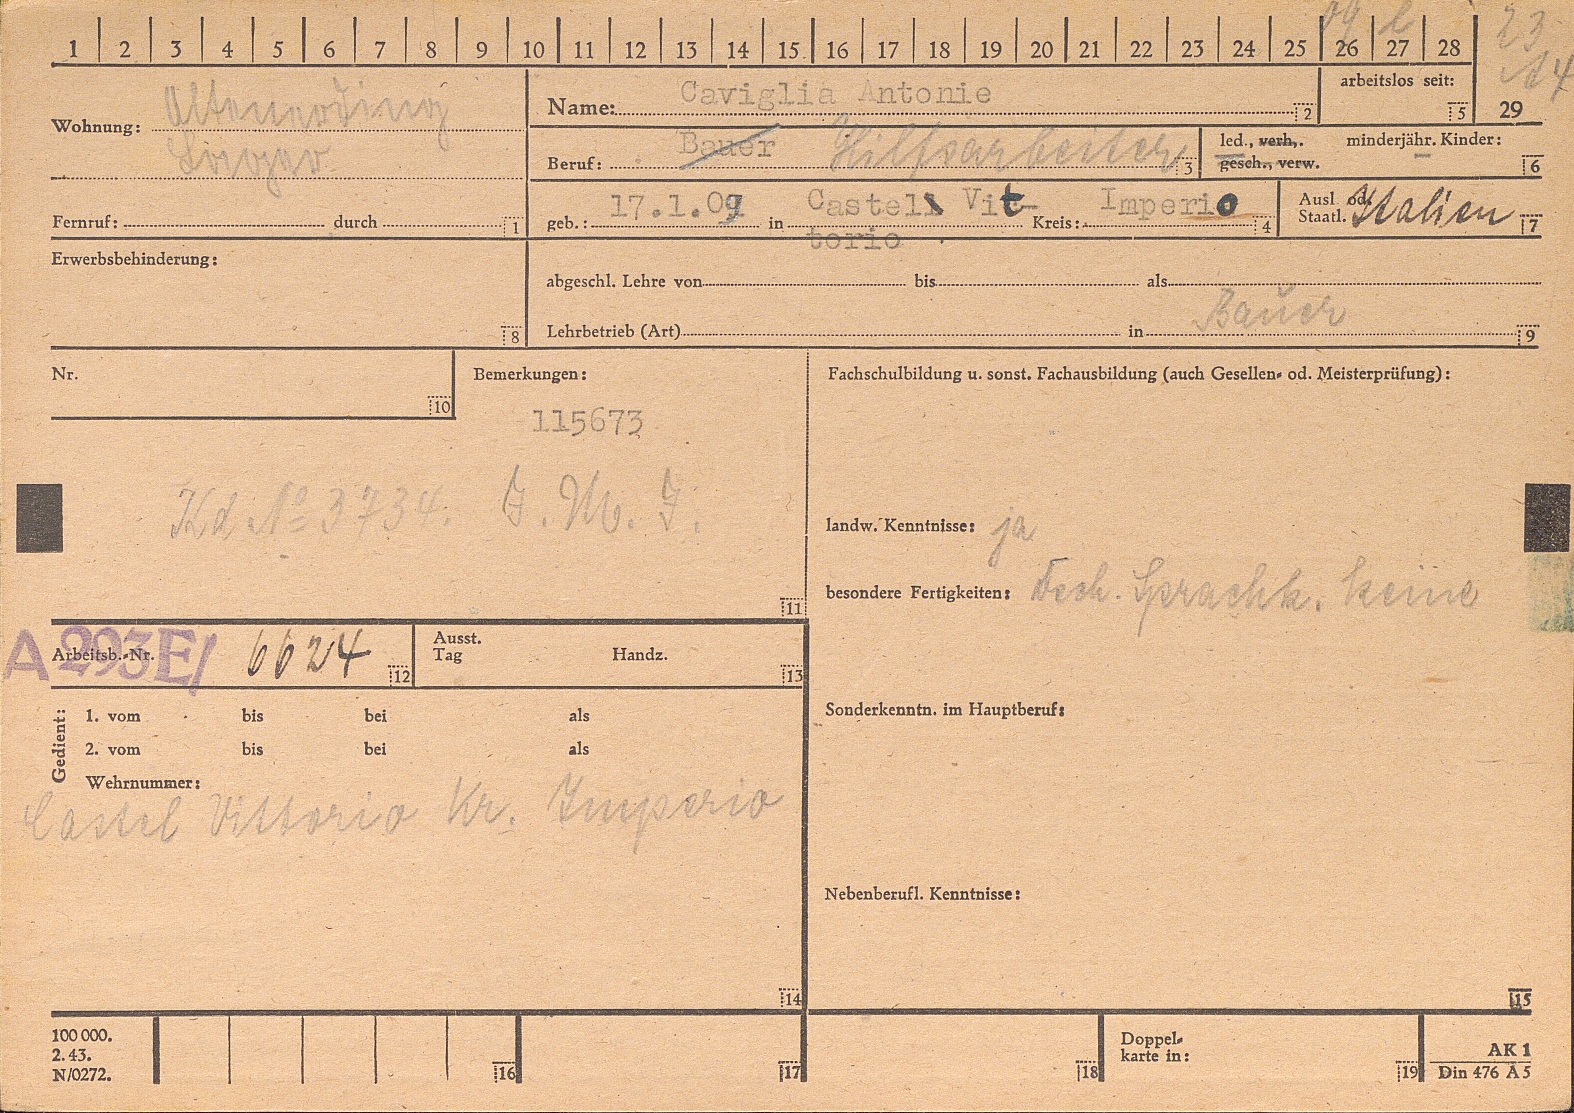 1 2 3 4 5 6 7 8 9 10 11 12 13 14 15 16 17 18 19 20 21 22 23 24 25 26 27 28
23
A4
29
Wohnung: Altenerding
Name: Caviglia Antonie 2
arbeitslos seit: 5
Beruf: Bauer Hilfsarbeiter 3
led., verh., gesch., verw.
minderjähr. Kinder: 6
Fernruf: durch 1
geb.: 17.1.09 in Castel Vit-
torio
Kreis: Imperio 4
Ausl od.
Staatl. Italien 7
Erwerbsbehinderung:
8
abgeschl. Lehre von bis als
Bauer
Lehrbetrieb (Art) in 9
Nr.
10
Bemerkungen:
115673
Kd No 3734. J. M. J.
11
Fachschulbildung u. sonst. Fachausbildung (auch Gesellen- od. Meisterprüfung):
landw. Kenntnisse: ja
besondere Fertigkeiten: Dtsch. Sprachk. keine
Sonderkenntn. im Hauptberuf:
Nebenberufl. Kenntnisse:
15
A 293E/
Arbeitsb.-Nr. 6624 12
Ausst.
Tag Handz. 13
Gedient:
1. vom bis bei als
2. vom bis bei als
Wehrnummer:
Castel Vittorio Kr. Imperio
14
100 000.
2. 43.
N/0272.
16 17 18
Doppel-
karte in: 19
AK 1
Din 476 A 5